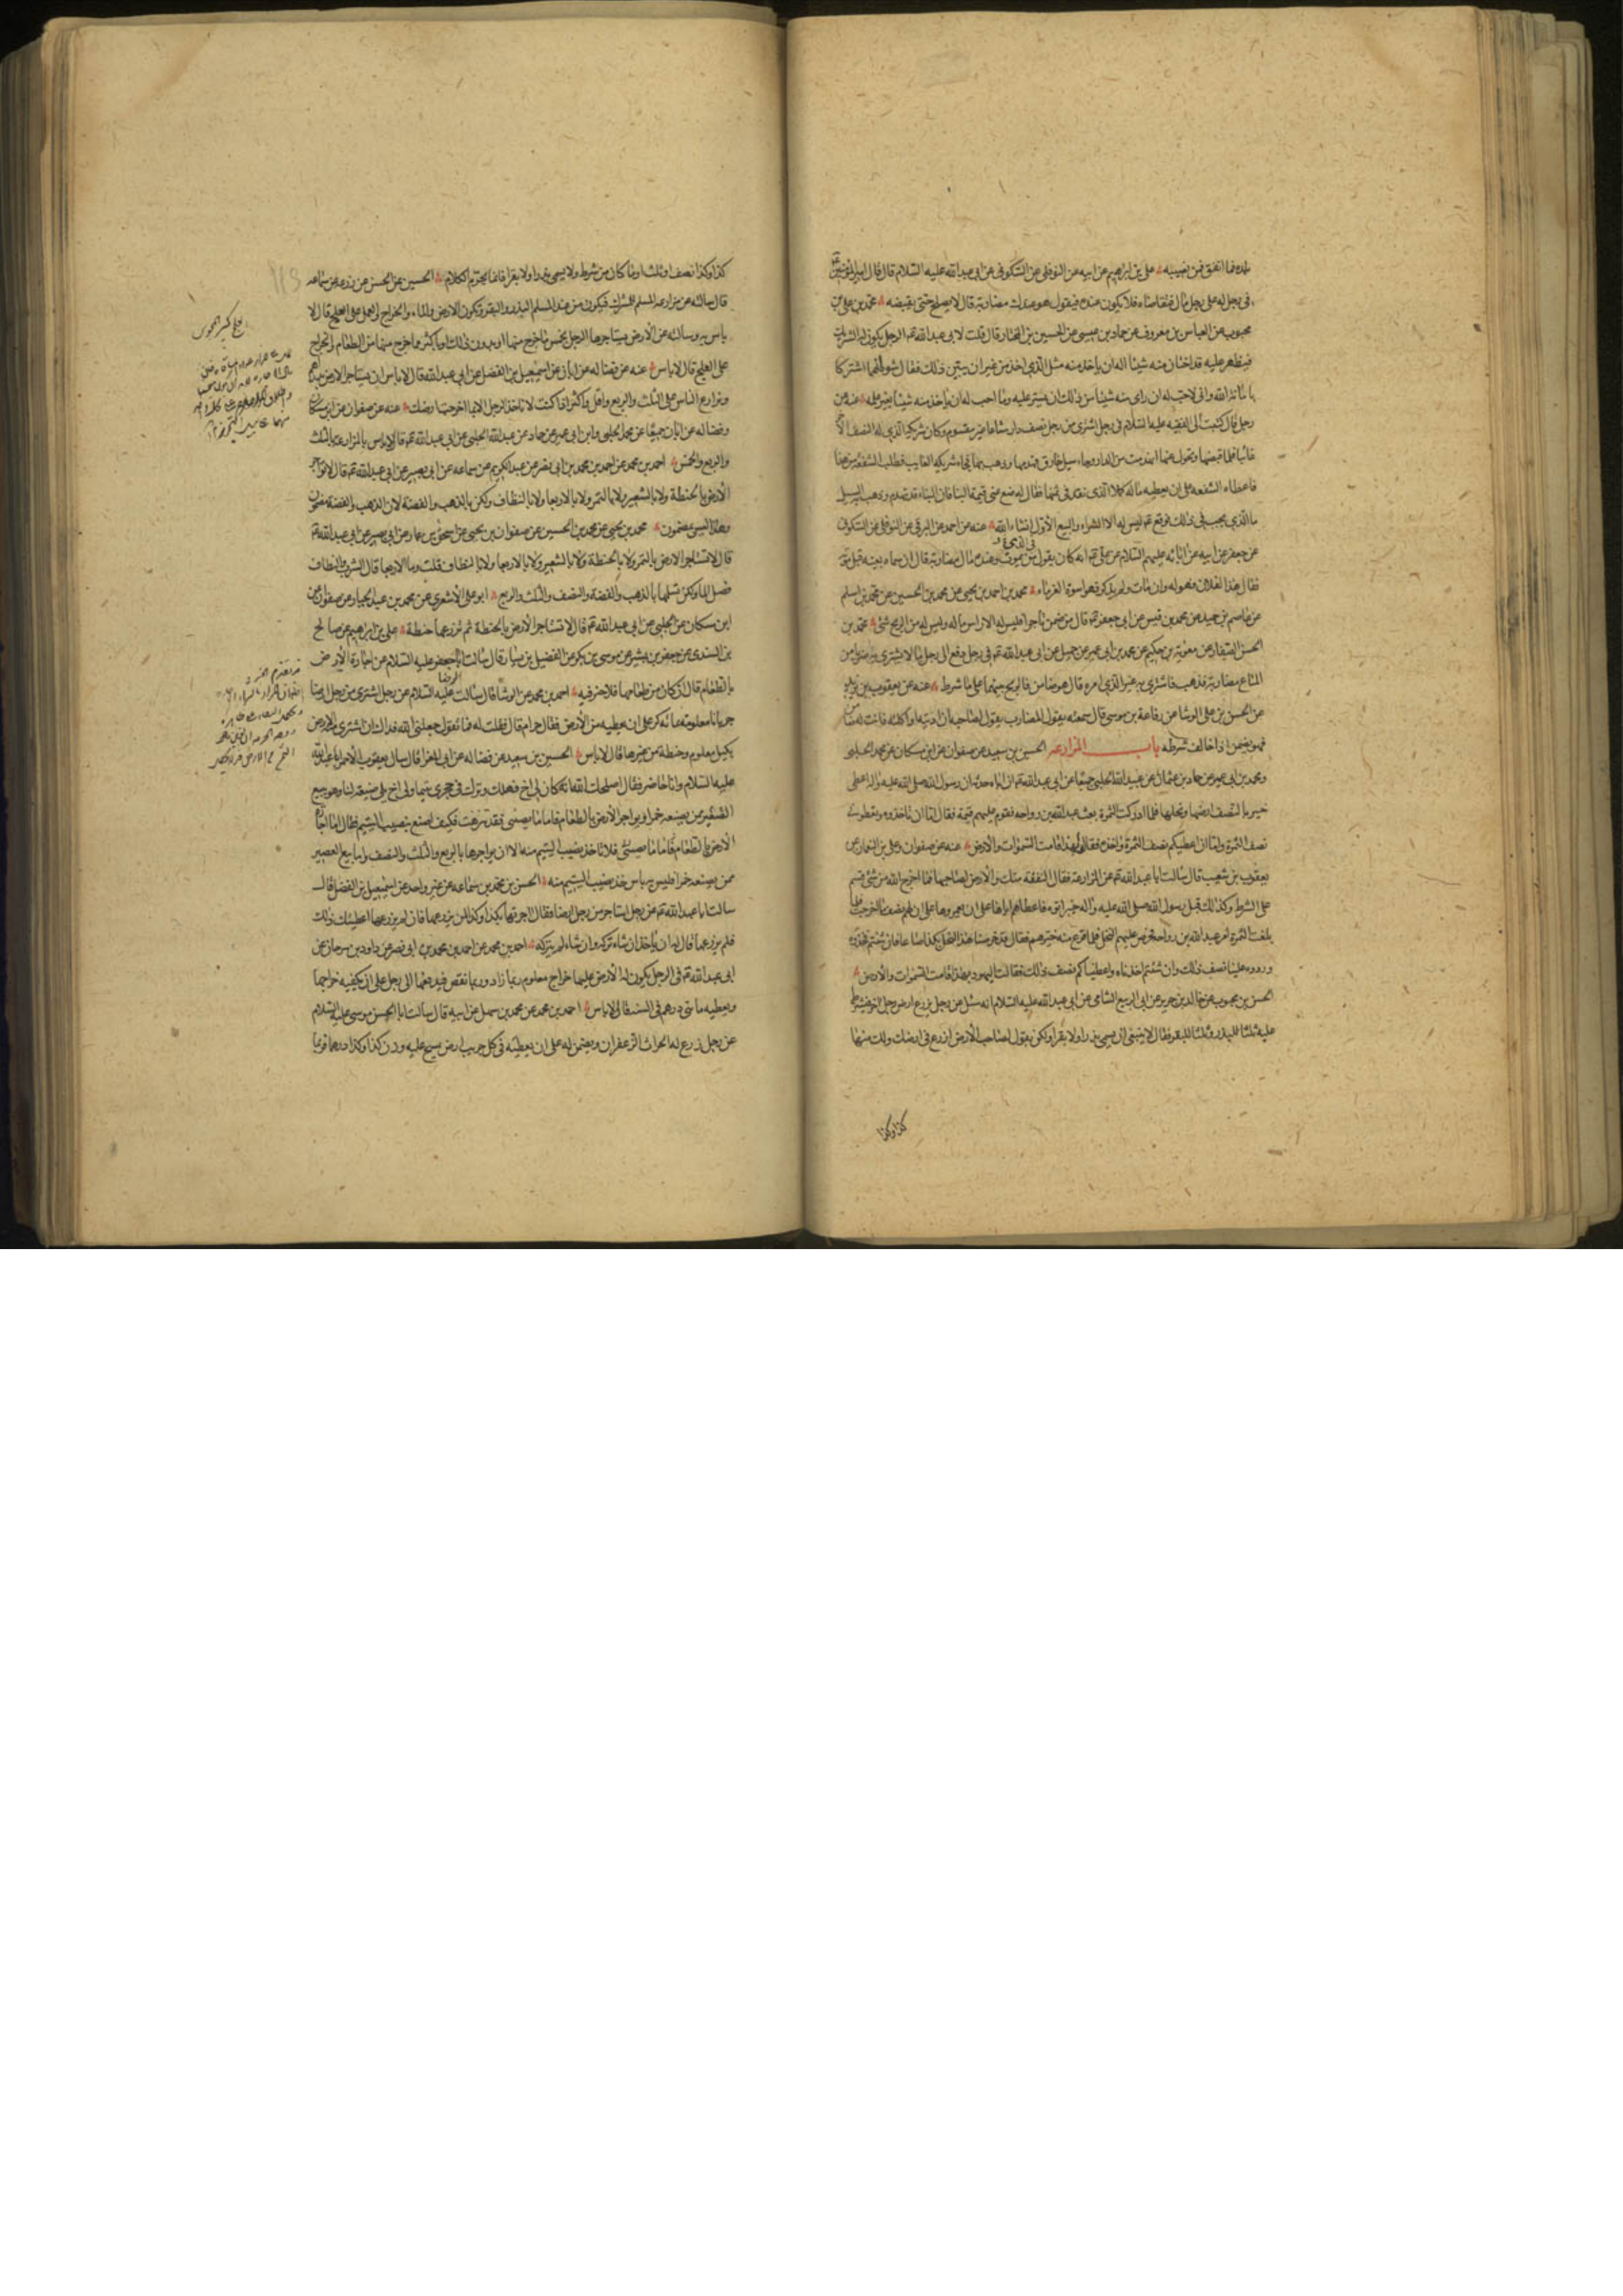 بلده فما انفق فمن نصيبه علي بن ابرهيم عن ابيه عن النوفلي عن السكوني عن ابي عبد الله عليه السلام قال قال امير المؤمنين
في رجل له على رجل مال فتقاضاه فلا يكون عنده فيقول هو عندك مضاربة قال لا يصلح حتى يقبضه محمد بن علي بن
محبوب عن العباس بن معروف عن حماد بن عيسى عن الحسين بن المختار قال قلت لابي عبد الله ع الرجل يكون له الشريك
فيظهر عليه قد اختان منه شيئا اله ان ياخذ منه مثل الذي اخذ من غير ان يبين ذلك فقال شوه انما اشتركا
بامانة الله واني لاحب له ان راى منه شيئا من ذلك ان يستر عليه وما احب له ان ياخذ منه شيئا بغير علمه عنه عن
رجل قال كتبت الى الفقيه عليه السلام في رجل اشترى من رجل نصف دار مشاعا غير مقسوم وكان شريكه الذي له النصف الاخر
غائبا فلما قبضها وتحول عنها انهدمت من الدار وجاء سيل خارق فهدمها وذهب بها فجاء شريكه الغايب فطلب الشفعة من هذا
فاعطاه الشفعة على ان يعطيه ماله كملا الذي نقد في ثمنها فقال له ضع عني قيمة البنا فان البناء قد تهدم وذهب به السيل
ما الذي يجب في ذلك فوقع ع ليس له الا الشراء والبيع الاول انشاء الله عنه عن احمد عن البرقي عن النوفلي عن السكوني
عن جعفر عن ابيه عن ابائه عليهم السلام عن علي ع انه كان يقول من يموت وعنده مال مضاربة قال ان سماه بعينه قبل موته
فقال هذا لفلان فهو له وان مات ولم يذكر فهو اسوة الغرماء محمد بن احمد بن يحيى عن محمد بن الحسين عن محمد بن اسلم
عن عاصم بن حميد عن محمد بن قيس عن ابي جعفر ع قال من ضمن تاجرا فليس له الا راس ماله وليس له من الربح شئ محمد بن
الحسن الصفار عن معوية بن حكيم عن محمد بن ابي عمير عن جميل عن ابي عبد الله ع في رجل دفع الى رجل مالا يشتري به ضربا من
المتاع مضاربة فذهب فاشترى به غير الذي امره قال هو ضامن والربح بينهما على ما شرط عنه عن يعقوب بن يزيد
عن الحسن بن علي الوشا عن رفاعة بن موسى قال سمعته يقول المضارب يقول لصاحبه ان ادنته او اكلته فانت له ضامن
فهو يضمن اذا خالف شرطه باب المزارعه الحسين بن سعيد عن صفوان عن ابن مسكان عن محمد الحلبي
ومحمد بن ابي عمير عن حماد بن عثمان عن عبيد الله الحلبي جميعا عن ابي عبد الله ع ان اباه حدثه ان رسول الله صلى الله عليه واله اعطى
خيبر بالنصف ارضها ونخلها فلما ادركت الثمرة بعث عبد الله بن رواحه فقوم عليهم قيمة فقال اما ان تاخذوه وتعطوني
نصف الثمرة واما ان اعطيكم نصف الثمرة واخذه فقالوا بهذا قامت السموات والارض عنه عن صفوان وعلي بن النعمان عن
يعقوب بن شعيب قال سالت ابا عبد الله ع عن المزارعة فقال النفقة منك والارض لصاحبها فما اخرج الله من شئ قسم
على الشرط وكذلك قبل رسول الله صلى الله عليه واله خيبر اتوه فاعطاهم اياها على ان يعمروها على ان لهم نصف ما اخرجت فلما
بلغت الثمرة امر عبد الله بن رواحة فخرص عليهم النخل فلما فرغ منه خيرهم فقال قد خرصنا هذا النخل بكذا صاعا فان شئتم فخذوه
وردوه علينا نصف ذلك وان شئتم اخذناه واعطيناكم نصف ذلك فقالت اليهود بهذا قامت السموات والارض
الحسن بن محبوب عن خالد بن جرير عن ابي الربيع الشامي عن ابي عبد الله عليه السلام انه سئل عن رجل يزرع ارض رجل اخر فيشترط
عليه ثلثا للبذر وثلثا للبقر فقال لا ينبغي ان يسمي بذرا ولا بقرا ولكن يقول لصاحب الارض ازرع في ارضك ولك منها
كذا وكذا
كذا وكذا نصف وثلث او ما كان من شرط ولا يسمي بذرا ولا بقرا فانما يحرم الكلام الحسين عن الحسن عن زرعه عن سماعه
قال سالته عن مزارعه المسلم المشرك فيكون من عند المسلم البذر والبقر وتكون الارض والماء والخراج والعمل على العلج قال لا
باس به وسالته عن الارض يستاجرها الرجل بخمس ما خرج منها او بدون ذلك او باكثر مما خرج منها من الطعام والخراج
على العلج قال لا باس عنه عن فضاله عن ابان عن اسمعيل بن الفضل عن ابي عبد الله قال لا باس ان يستاجر الارض بدراهم
وتزارع الناس على الثلث والربع واقل واكثر اذا كنت لا تاخذ الرجل الا بما اخرجت ارضك عنه عن صفوان عن ابن مسكان
وفضاله عن ابان جميعا عن محمد الحلبي وابن ابي عمير عن حماد عن عبيد الله الحلبي عن ابي عبد الله ع قال لا باس بالمزارعة بالثلث
والربع والخمس احمد بن محمد عن احمد بن محمد بن ابي نصر عن عبد الكريم عن سماعه عن ابي بصير عن ابي عبد الله ع قال لا تواجر
الارض بالحنطة ولا بالشعير ولا بالتمر ولا بالاربعا ولا بالنطاف ولكن بالذهب والفضة لان الذهب والفضة مضمون
وهذا ليس بمضمون محمد بن يحيى عن محمد بن الحسين عن صفوان بن يحيى عن اسحق بن عمار عن ابي بصير عن ابي عبد الله ع
قال لا تستاجر الارض بالتمر ولا بالحنطة ولا بالشعير ولا بالاربعا ولا بالنطاف قلت وما الاربعا قال الشرب والنطاف
فضل الماء ولكن تسلمها بالذهب والفضة والنصف والثلث والربع ابو علي الاشعري عن محمد بن عبد الجبار عن صفوان عن
ابن مسكان عن الحلبي عن ابي عبد الله ع قال لا تستاجر الارض بالحنطة ثم تزرعها حنطة علي بن ابراهيم عن صالح
بن السندي عن جعفر بن بشير عن موسى بن بكر عن الفضيل بن يسار قال سالت ابا جعفر عليه السلام عن اجارة الارض
بالطعام قال ان كان من طعامها فلا خير فيه احمد بن محمد عن الوشا قال سالت الرضا عليه السلام عن رجل اشترى من رجل ارضا
جربانا معلومة بمائه كر على ان يعطيه من الارض فقال حرام قال فقلت له فما تقول جعلني الله فداك ان اشترى منه الارض
بكيل معلوم وحنطة من غيرها قال لا باس الحسين بن سعيد عن فضاله عن ابي المغرا قال سال يعقوب الاحمر ابا عبد الله
عليه السلام وانا حاضر فقال اصلحك الله انه كان لي اخ فهلك وترك في حجري يتيما ولي اخ يلي ضيعة لنا وهو يبيع
العصير من يصنعه خمرا ويواجر الارض بالطعام فاما ما يصيبني فقد تنزهت فكيف اصنع بنصيب اليتيم فقال اما اجارة
الارض بالطعام فاما ما يصيبني فلا تاخذ نصيب اليتيم منه الا ان يواجرها بالربع والثلث والنصف واما بيع العصير
ممن يصنعه خمرا فليس به باس خذ نصيب اليتيم منه الحسن بن محمد بن سماعه عن غير واحد عن اسمعيل بن الفضل قال
سالت ابا عبد الله ع عن رجل استاجر من رجل ارضا فقال اجرتها بكذا وكذا ان زرعها فان لم يزرعها اعطيتك ذلك
فلم يزرعها قال له ان ياخذ ان شاء تركه وان شاء لم يتركه احمد بن محمد عن احمد بن محمد بن ابي نصر عن داود بن سرحان عن
ابي عبد الله ع في الرجل يكون له الارض عليها خراج معلوم ربما زاد وربما نقص فيدفعها الى رجل على ان يكفيه خراجها
ويعطيه مائتي درهم في السنة قال لا باس احمد بن محمد عن محمد بن سهل عن ابيه قال سالت ابا الحسن موسى عليه السلام
عن رجل زرع له الحراث الزعفران ويضمن له على ان يعطيه في كل جريب ارض يمسح عليه وزن كذا وكذا درهما فربما